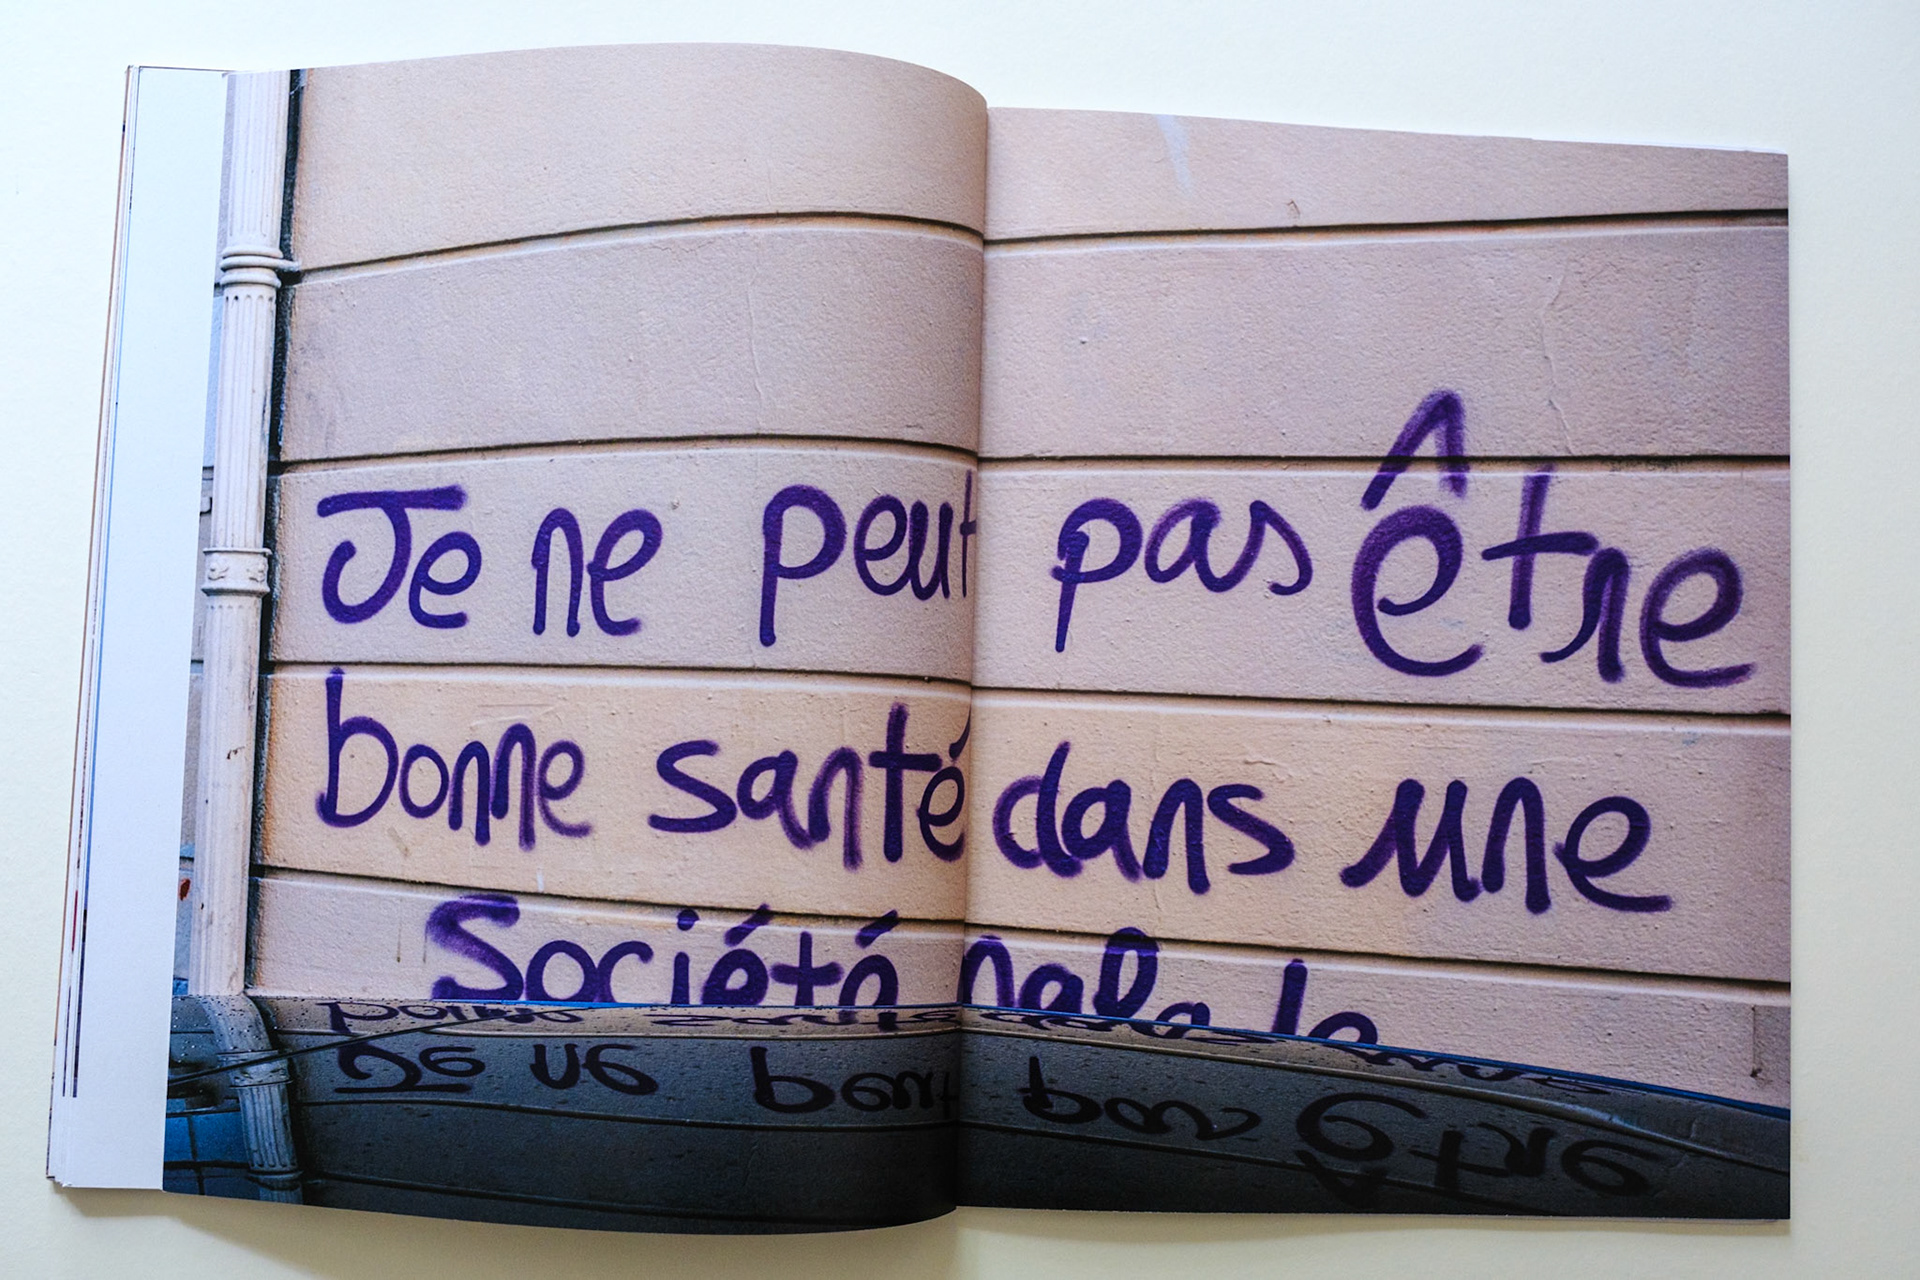 Je ne peut pas être
bonne santé dans une
Société malade